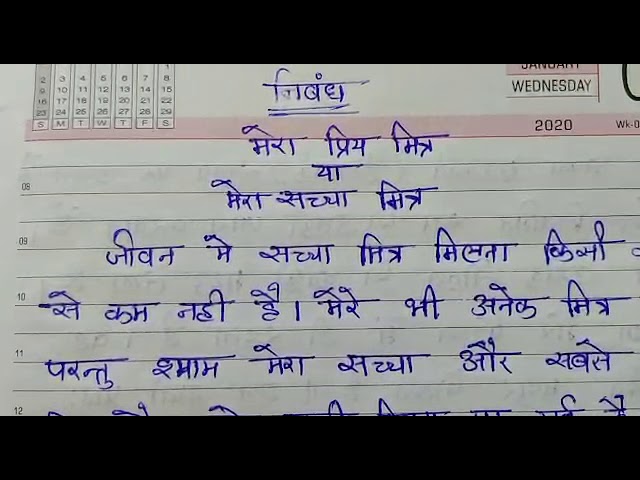 JANUARY
WEDNESDAY
2 3 4 5 6 7 8
9 10 11 12 13 14 15
16 17 18 19 20 21 22
23 24 25 26 27 28 29
S M T W T F S
2020 Wk-0
निबंध
मेरा प्रिय मित्र
या
08
मेरा सच्चा मित्र
09 जीवन मे सच्चा मित्र मिलना किसी
10 से कम नही है। मेरे भी अनेक मित्र
11 परन्तु श्याम मेरा सच्चा और सबसे
12